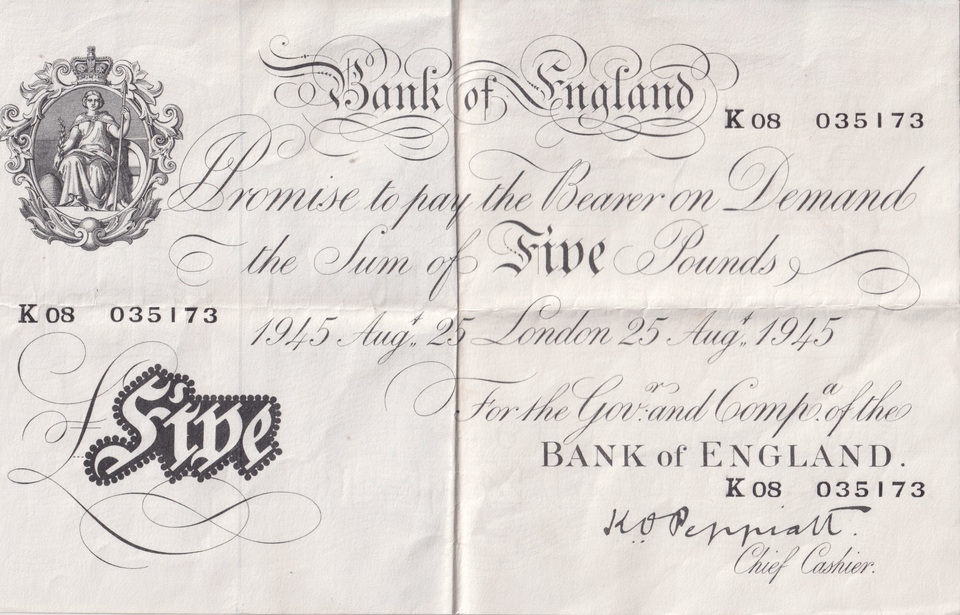 Bank of England
K08 035173
Promise to pay the Bearer on Demand
the Sum of Five Pounds
K08 035173
1945 Augt 25 London 25 Augt 1945
£Five
For the Govr: and Compa. of the
BANK of ENGLAND.
K08 035173
K O Peppiatt.
Chief Cashier.